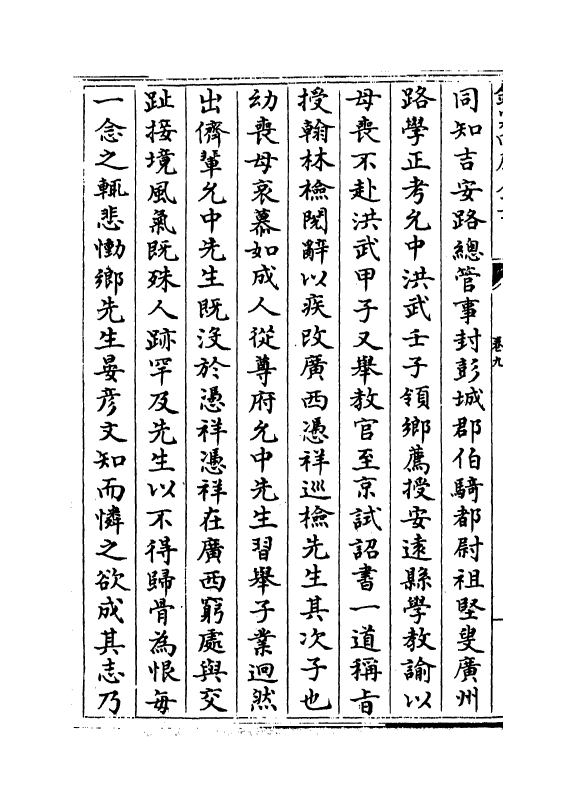 卷九
同知吉安路總管事封彭城郡伯騎都尉祖堅叟廣州
路學正考允中洪武壬子領鄉薦授安遠縣學教諭以
母喪不赴洪武甲子又舉教官至京試詔書一道稱旨
授翰林檢閱辭以疾改廣西憑祥巡檢先生其次子也
幼喪母哀慕如成人從尊府允中先生習舉子業迥然
出儕輩允中先生既沒於憑祥憑祥在廣西窮處與交
趾接境風氣既殊人跡罕及先生以不得歸骨為恨每
一念之輒悲慟鄉先生晏彥文知而憐之欲成其志乃